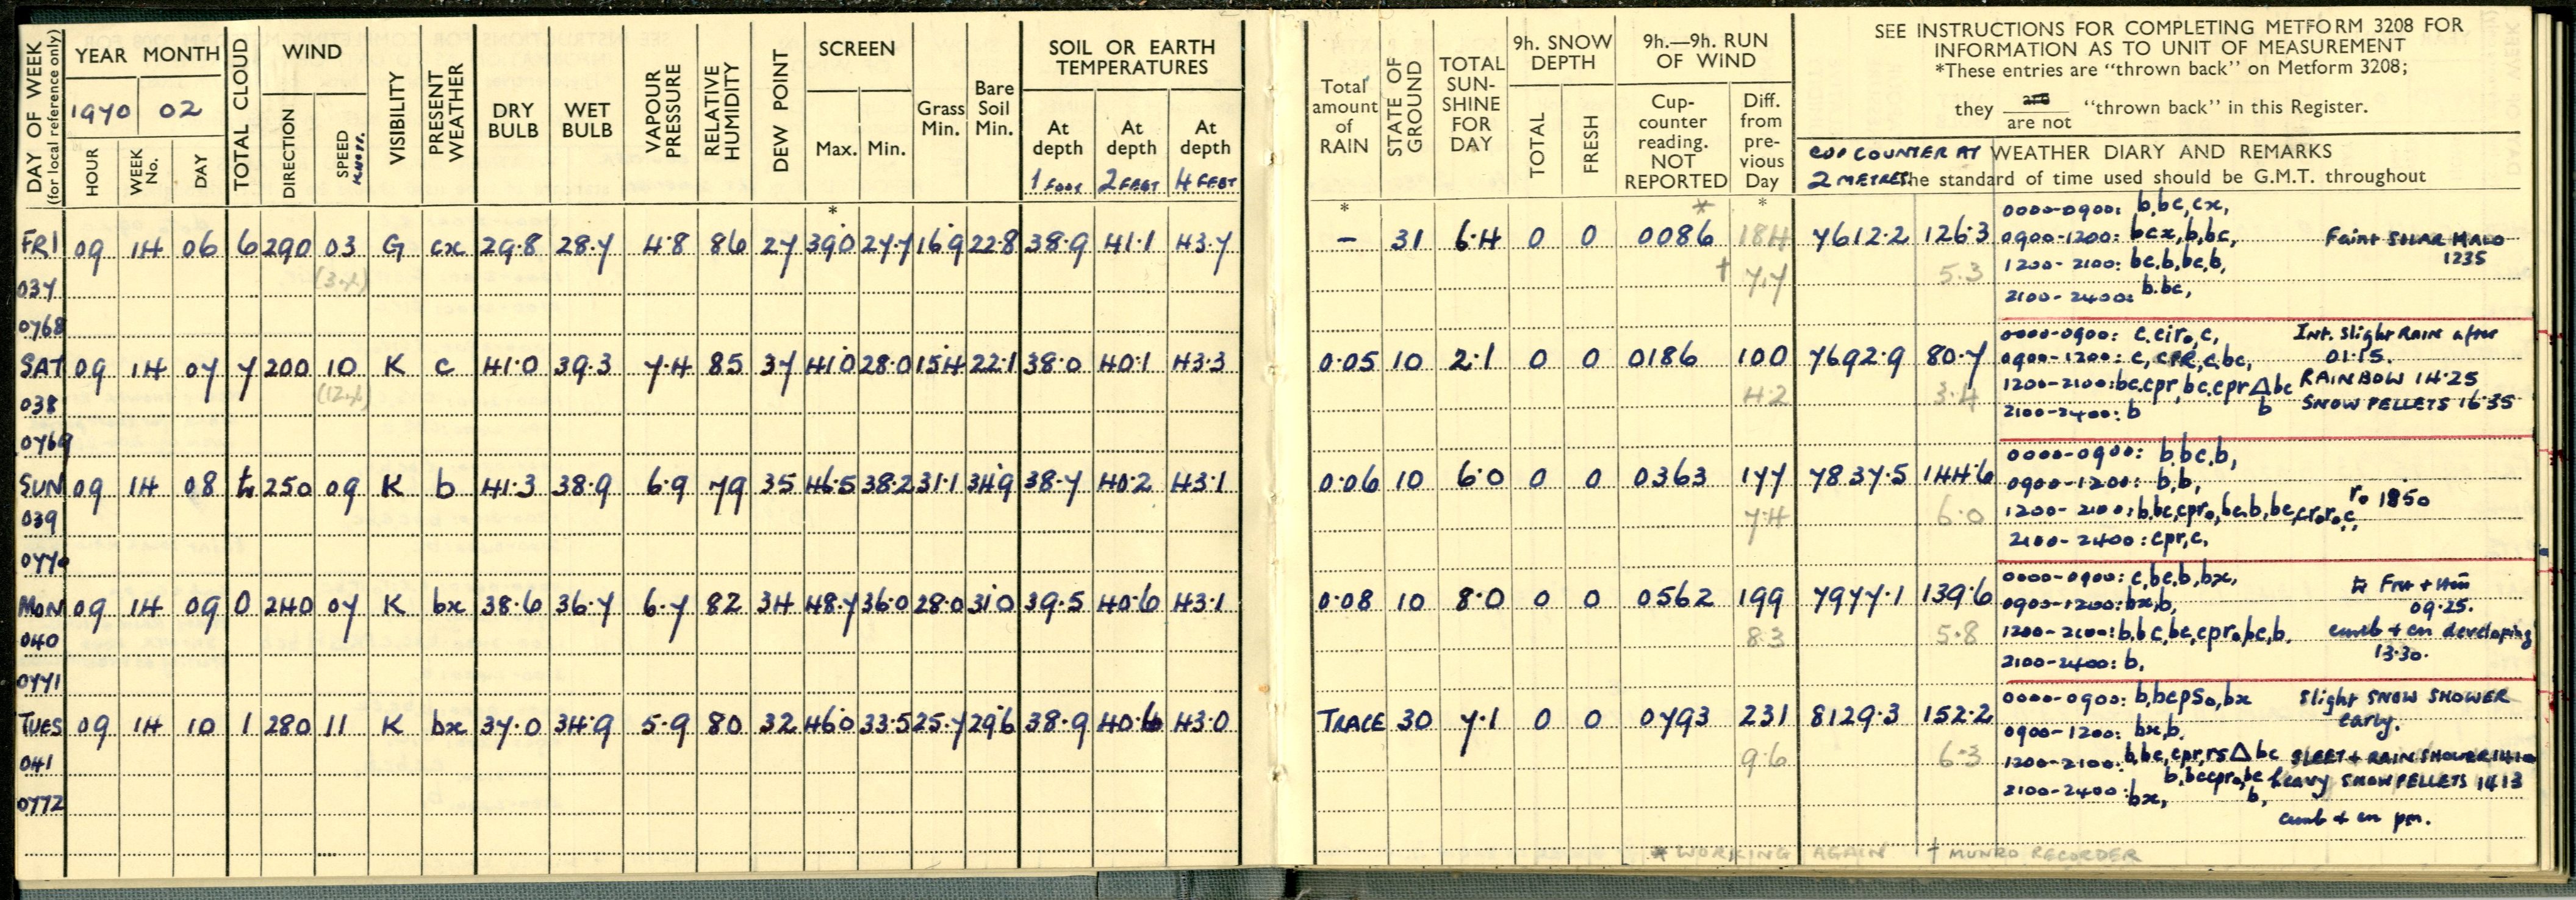 DAY OF WEEK
(for local reference only)
YEAR MONTH
1970 02
HOUR
WEEK No.
DAY
TOTAL CLOUD
WIND
DIRECTION
SPEED
KNOTS.
VISIBILITY
PRESENT WEATHER
DRY BULB
WET BULB
VAPOUR PRESSURE
RELATIVE HUMIDITY
DEW POINT
SCREEN
Max. Min.
Grass Min.
Bare Soil Min.
SOIL OR EARTH TEMPERATURES
At depth 1 FOOT
At depth 2 FEET
At depth 4 FEET
Total amount of RAIN
STATE OF GROUND
TOTAL SUN-SHINE FOR DAY
9h. SNOW DEPTH
TOTAL
FRESH
9h.—9h. RUN OF WIND
Cup-counter reading. NOT REPORTED
Diff. from pre-vious Day
SEE INSTRUCTIONS FOR COMPLETING METFORM 3208 FOR
INFORMATION AS TO UNIT OF MEASUREMENT
*These entries are "thrown back" on Metform 3208;
they are / are not "thrown back" in this Register.
CUP COUNTER AT 2 METRES
WEATHER DIARY AND REMARKS
The standard of time used should be G.M.T. throughout
* * * *
FRI 09 14 06 6 290 03 G cx 29.8 28.7 4.8 86 27 39.0 27.7 16.9 22.8 38.9 41.1 43.7 – 31 6.4 0 0 0086 184 7612.2 126.3
(3.4) † 7.7 5.3
037
0768
0000-0900: b,bc,cx,
0900-1200: bcx,b,bc,
1200-2100: bc,b,bc,b,
2100-2400: b.bc,
Faint SOLAR HALO
1235
SAT 09 14 07 7 200 10 K c 41.0 39.3 7.4 85 37 41.0 28.0 15.4 22.1 38.0 40.1 43.3 0.05 10 2.1 0 0 0186 100 7692.9 80.7
4.2 3.4
038
0769
0000-0900: c.cir₀,c,
0900-1200: c, cpr,c,bc,
1200-2100: bc.cpr,bc.cpr△bc
2100-2400: b b
Int. Slight RAIN after
01.15.
RAINBOW 14.25
SNOW PELLETS 16.35
SUN 09 14 08 tr 250 09 K b 41.3 38.9 6.9 79 35 46.5 38.2 31.1 34.9 38.7 40.2 43.1 0.06 10 6.0 0 0 0363 177 7837.5 144.6
7.4 6.0
039
0770
0000-0900: b.bc.b,
0900-1200: b,b,
1200-2100: b,bc,cpr₀,bc,b,bc,
2100-2400: cpr,c,
r₀ 1850
MON 09 14 09 0 240 07 K bx 38.6 36.7 6.7 82 34 48.7 36.0 28.0 31.0 39.5 40.6 43.1 0.08 10 8.0 0 0 0562 199 7977.1 139.6
8.3 5.8
040
0771
0000-0900: c,bc,b,bx,
0900-1200: bx,b,
1200-2100: b,bc,bc,cpr₀,bc,b.
2100-2400: b,
09.25.
cumb + cn developing
13.30.
TUES 09 14 10 1 280 11 K bx 37.0 34.9 5.9 80 32 46.0 33.5 25.7 29.6 38.9 40.6 43.0 TRACE 30 7.1 0 0 0793 231 8129.3 152.2
9.6 6.3
041
0772
0000-0900: b,bcps₀,bx
0900-1200: bx,b,
1200-2100: b,bc,cpr,rs△bc
b,bccpr₀bc
2100-2400: bx, b,
Slight SNOW SHOWER
early.
SLEET + RAIN SHOWER 1410
heavy SNOW PELLETS 1413
cumb + cn pm.
* WORKING AGAIN † MUNRO RECORDER